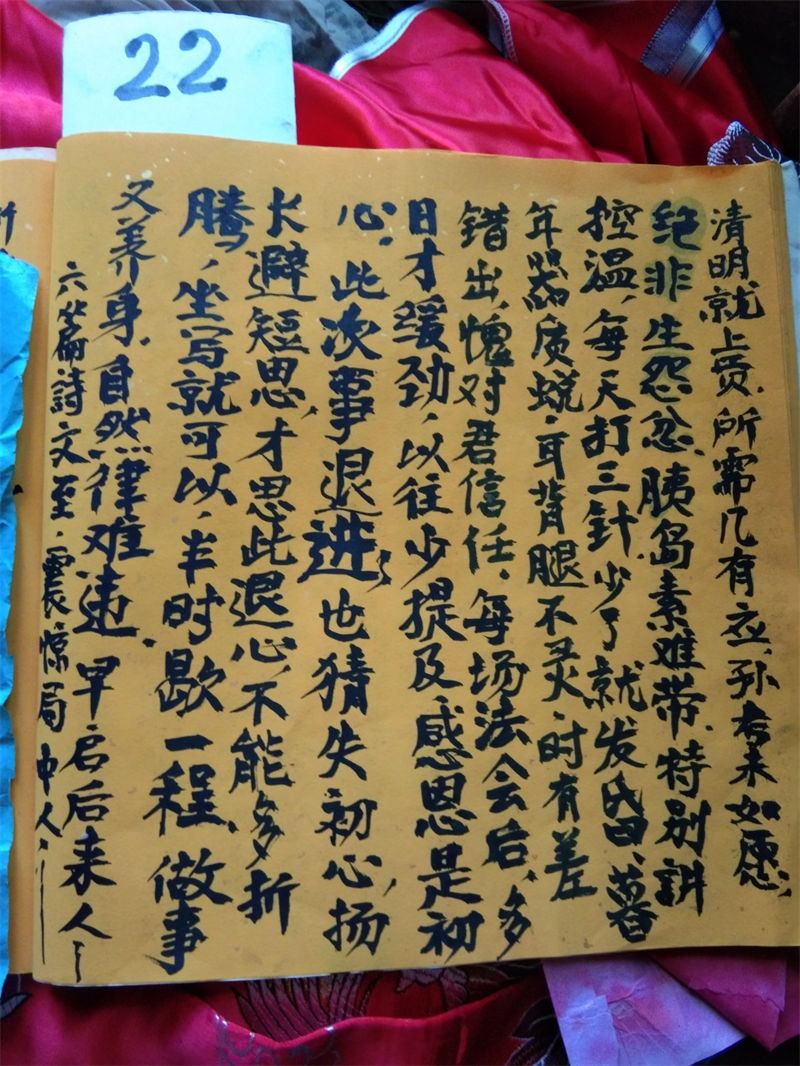 22
清明就上贡、所需几有应、孙考未如愿、
绝非生怨忿、胰岛素难带、特别讲
控温、每天打三针、少了就发昏、暮
年器质蜕、耳背腿不灵、时有差
错出、愧对君信任、每场法会后、多
日才缓劲、以往少提及、感恩是初
心、此次事退进、也猜失初心、扬
长避短思、才思此退心、不能多折
腾、坐写就可以、半时歇一程、做事
又养身、自然律难违、早启后来人
六篇詩文至、震惊局中人